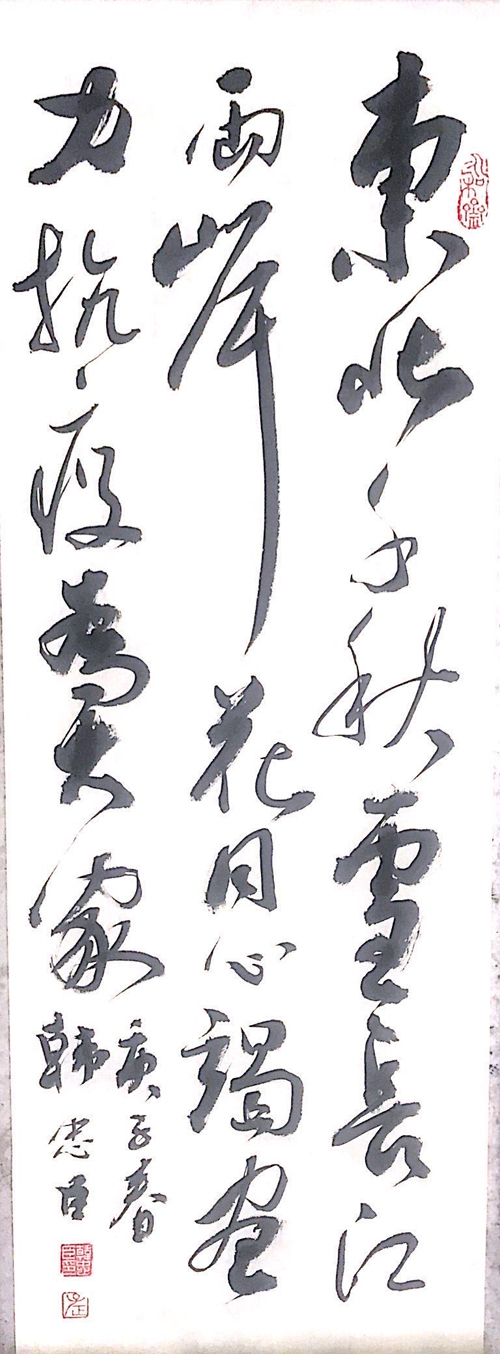 東北千秋雪長江
兩岸花同心竭盡
力抗疫為大家
庚子春
韓忠臣